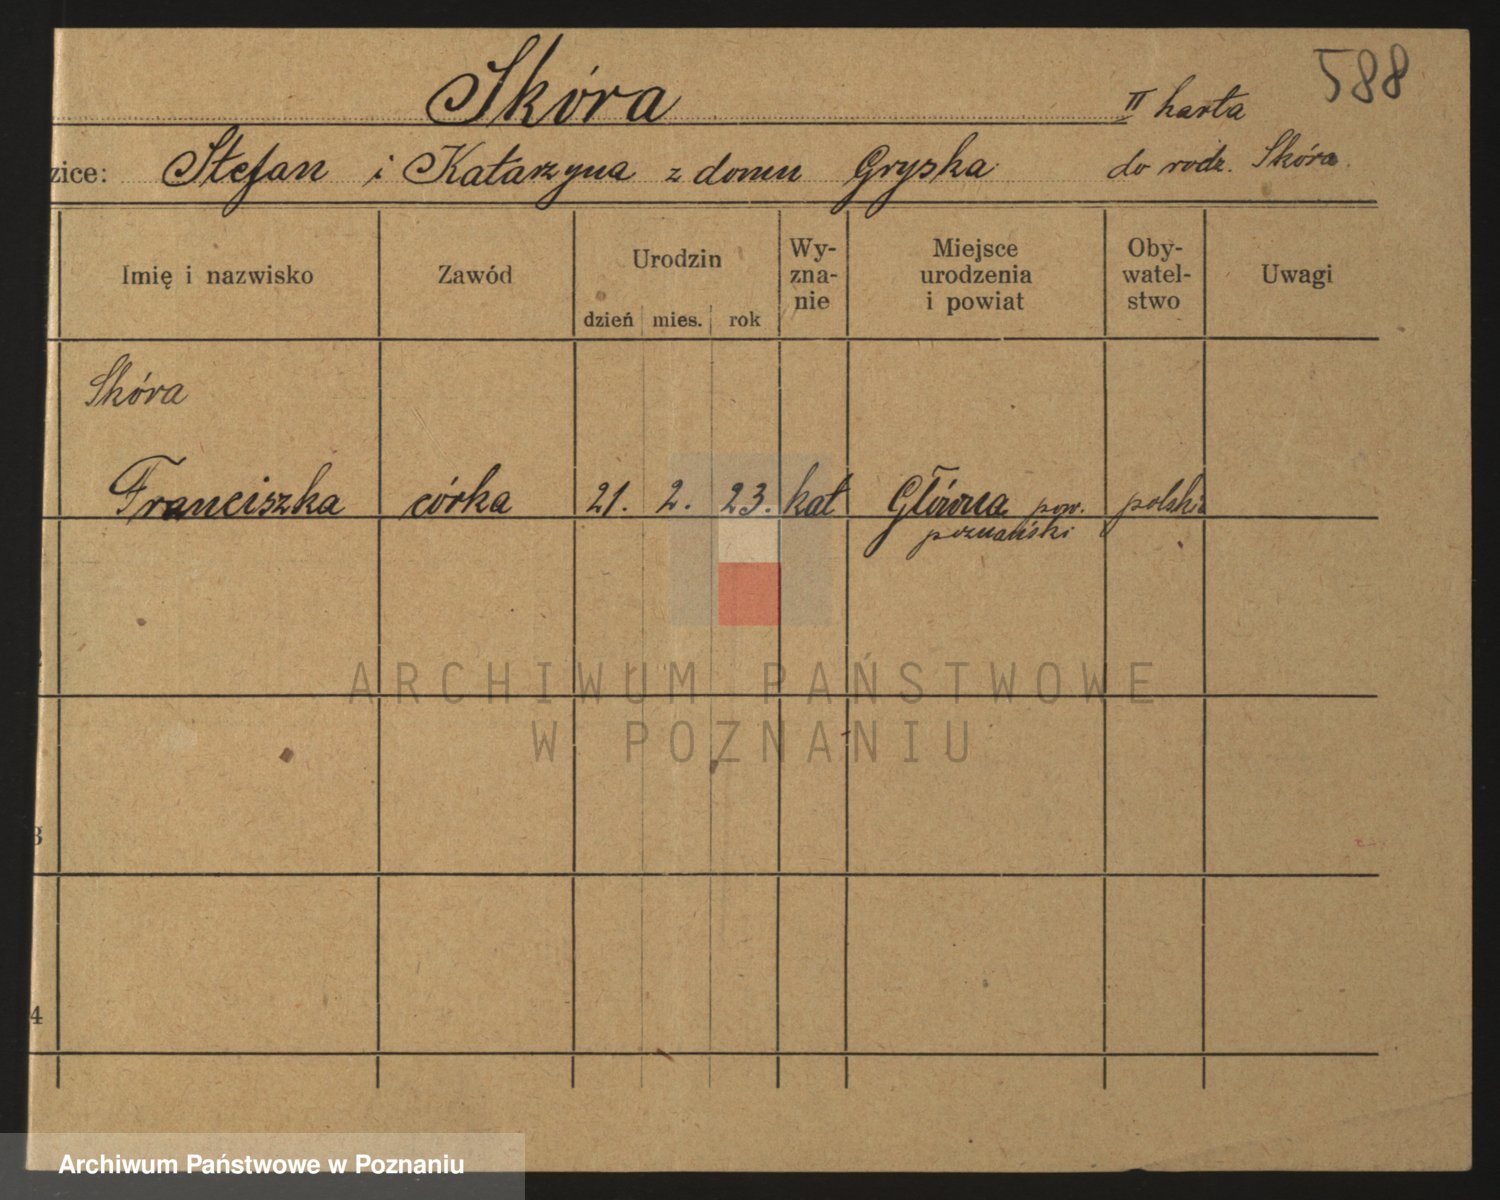 588
Skóra
II karta
zice: Stefan i Katarzyna z domu Gryska do rodz. Skóra.
Imię i nazwisko Zawód Urodzin dzień mies. rok Wy-
zna-
nie Miejsce
urodzenia
i powiat Oby-
watel-
stwo Uwagi
Skóra
Franciszka córka 21. 2. 23. kat Główna pow.
poznański polskie
ARCHIWUM PAŃSTWOWE
W POZNANIU
3
4
Archiwum Państwowe w Poznaniu